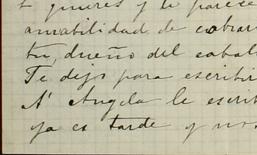 t quieres y te parece
amabilidad de cobrar
tu, dueño del cabal
Te dejo para escribir
A' Angela le escrib
ya es tarde y no